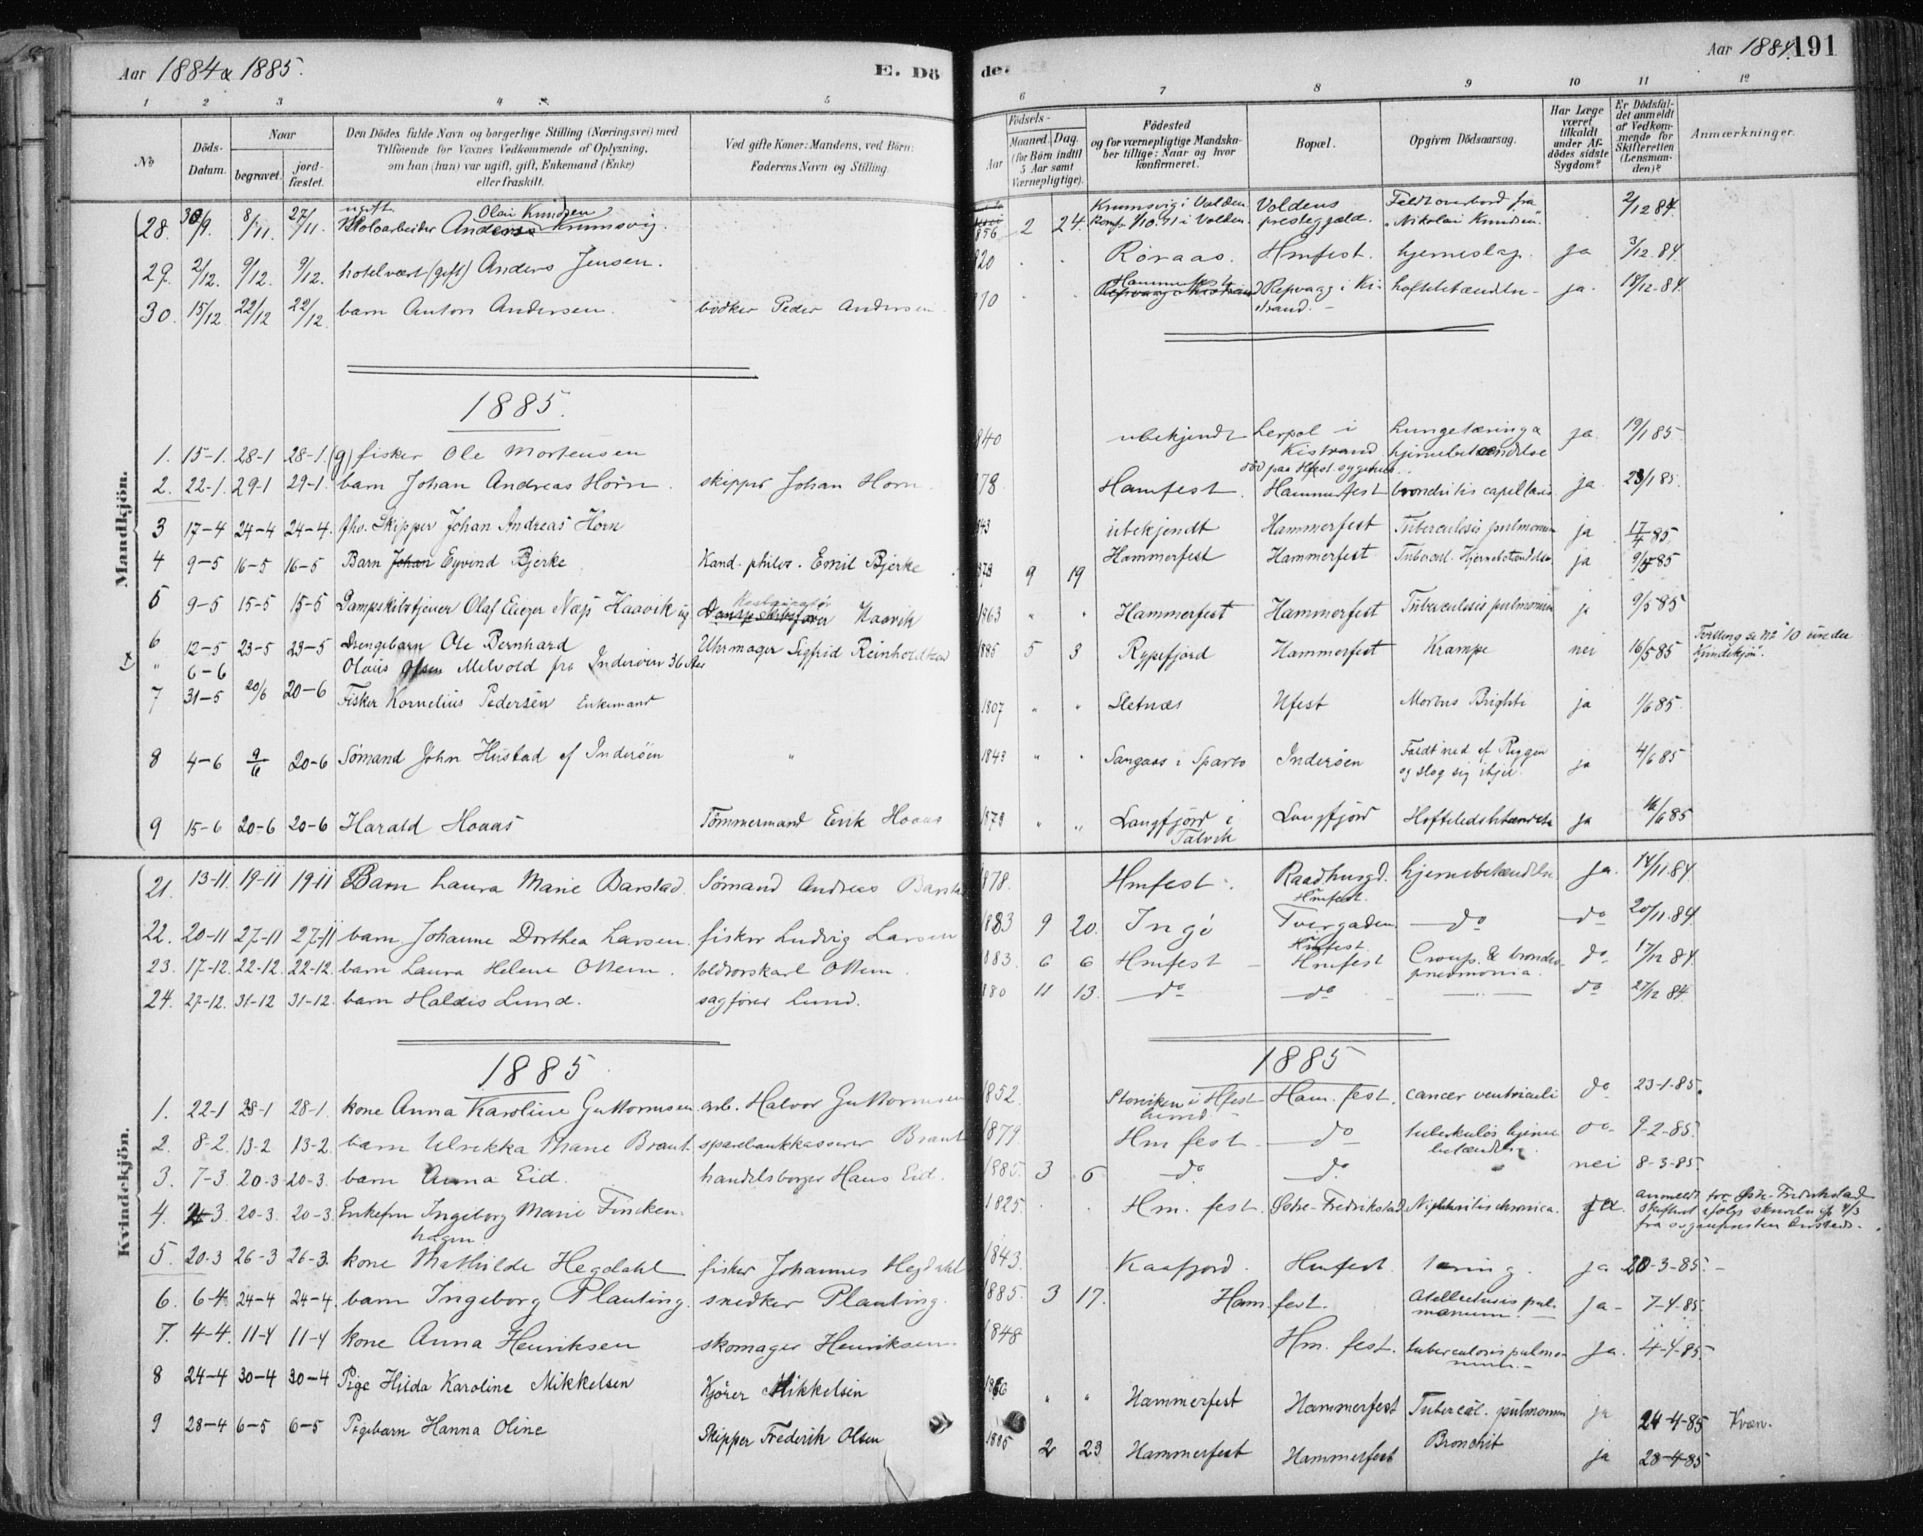 Aar 1884 & 1885.
E. Dö de.
Aar 1884. 191
1 2 3 4 5 6 7 8 9 10 11 12
No
Döds-Datum.
Naar
begravet.
jord-fæstet.
Den Dödes fulde Navn og borgerlige Stilling (Næringsvei) med
Tilföiende for Voxnes Vedkommende af Oplysning,
om han (hun) var ugift, gift, Enkemand (Enke)
eller fraskilt.
Ved gifte Koner: Mandens, ved Börn:
Faderens Navn og Stilling.
Födsels-
Aar
Maaned. Dag.
(for Börn indtil
5 Aar samt
Værnepligtige).
Födested
og for værnepligtige Mandska-
ber tillige: Naar og hvor
konfirmeret.
Bopæl.
Opgiven Dödsaarsag.
Har Læge
været
tilkaldt
under Af-
dödes sidste
Sygdom?
Er Dödsfal-
det anmeldt
af Vedkom-
mende for
Skifteretten
(Lensman-
den)?
Anmærkninger.
Mandkjön.
28. 30/9. 8/11. 27/11. ugift Anders Olai Knudsen Krumsvig. 856 2 24. Krumsvig i Volden Konf. 1/10.71 i Volden. Voldens præstegjæld. Faldt overbord fra "Nikolai Knudsen". 2/12 84.
29. 2/12. 9/12. 9/12. hotelvært (gift) Anders Jensen. 820 Röraas. Hmfest. hjerneslag. ja 3/12.84.
30. 15/12 22/12 22/12. barn Anton Andersen. bödker Peder Andersen 870 Hammerfest Repvaag i Kistrand Repvaag i Ki-strand. hoftebetændelse ja. 18/12.84.
1885.
1. 15-1. 28-1 28-1. (g) fisker Ole Mortensen 840 ubekjendt Lerpol i Kistrand död paa Hfest. sygehus. Lungetæring & hjernebetændelse ja. 19/1 85.
2. 22-1. 29-1 29-1. barn Johan Andreas Horn. skipper Johan Horn. 878. Hamfest. Hammerfest bronchitis capillaris ja. 23/1 85.
3 17-4 24-4 24-4. fhv. Skipper Johan Andreas Horn 843 ubekjendt Hammerfest Tuberculosis pulmonum ja 17/4 85.
4 9-5 16-5 16-5 Barn Johan Eyvind Bjerke Kand. philos. Emil Bjerke 9 19 Hammerfest Hammerfest Tubercul. Hjernebetændelse ja 9/5 85
5 9-5 15-5 15-5 Dampskibstjener Olaf Eieger Næss Haavik ug. Restauratör Dampskibsförer Haavik 1863 " " Hammerfest Hammerfest Tuberculosis pulmonum ja 9/5 85
6 12-5 23-5 23-5 Drengebarn Ole Bernhard Uhrmager Sigfrid Reinholdtsen 1885 5 3 Rypefjord Hammerfest Krampe nei 16/5 85 Forts. se No 10 under Kvindekjön.
" 6-6 Olaus Olsen Melvold fra Inderöen 36 Aar
7 31-5 20/6 20-6 Fisker Kornelius Pedersen Enkemand 1807 " " Sletnæs Hfest Morbus Brighti ja 1/6 85.
8 4-6 9/6 20-6 Sömand John Hustad af Inderöen " 1843 " " Sangaas i Sparbo Inderöen Faldt ned af Riggen og slog sig ihjel. ja 4/6 85
9 15-6 20-6 20-6 Harald Hoaas Tömmermand Erik Hoaas 1879 " " Langfjord i Talvik Langfjord Hofteledsbetændelse ja 16/6 85
Kvindekjön.
21. 13-11. 19-11 19-11 Barn Laura Marie Barstad. Sömand Andreas Barstad 1878. Hmfest. Raadhusgd. Hmfest. hjernebetændelse ja. 14/11.84.
22. 20-11 27-11 27-11 barn Johanne Dorthea Larsen. fisker Ludvig Larsen 1883 9 20. Ingö Tvergaden Hmfest. do do 20/11.84.
23. 17-12. 22-12. 22-12. barn Laura Helene Ottem. toldrorskarl Ottem. 883. 6 6 Hmfest Hmfest Croup. & broncho-pneumonia. do 17/12 84.
24. 27-12. 31-12 31-12. barn Haldis Lund. sagförer Lund. 880 11 13. do do do 27/12 84.
1885 1885
1. 22-1 28-1 28-1. kone Anna Karoline Guttormsen arb. Halvor Guttormsen 1852. Storviken i Hfest Ham.fest. cancer ventriculi do 23-1-85.
2. 8-2. 13-2 13-2. barn Ulrikka Marie Brant. sparebankkasserer Brant 1879. Hmfest do tuberkulös hjerne betændelse do 9-2-85.
3. 7-3. 20-3 20-3. barn Anna Eid. handelsborger Hans Eid. 1885. 3 6 do. do. nei 8-3-85.
4. 4-3. 20-3. 20-3. Enkefru Ingeborg Marie Fincken-hagen. 1825. Hm.fest. Östre-Fredrikstad Nephritis chronica. ja. anmeldt for Östre-Fredrikstad skifteret ifölge skrivelse af 4/3 fra
5. 20-3 26-3 26-3. kone Mathilde Hegdahl fisker Johannes Hegdahl 1843. Kaafjord. Hmfest. tæring. ja 20-3-85.
6. 6-4. 24-4 24-4. barn Ingeborg Planting. snedker Planting. 1885. 3 17. Ham.fest. Atelectasis pul-monum. ja 7-4-85.
7. 4-4. 11-4 11-4 kone Anna Henriksen skomager Henriksen. 1848 Hm.fest. tuberculosis pulmo-num. ja. 4-4-85.
8 24-4 30-4 30-4 Pige Hilda Karoline Mikkelsen Kjörer Mikkelsen 1866 " " Hammerfest Hammerfest Tubercul. pulmonum ja 24-4-85 Kvæn.
9 28-4 6-5 6-5 Pigebarn Hanna Oline Skipper Frederik Olsen 1885 2 23 Hammerfest Hammerfest Bronchit ja 28-4-85